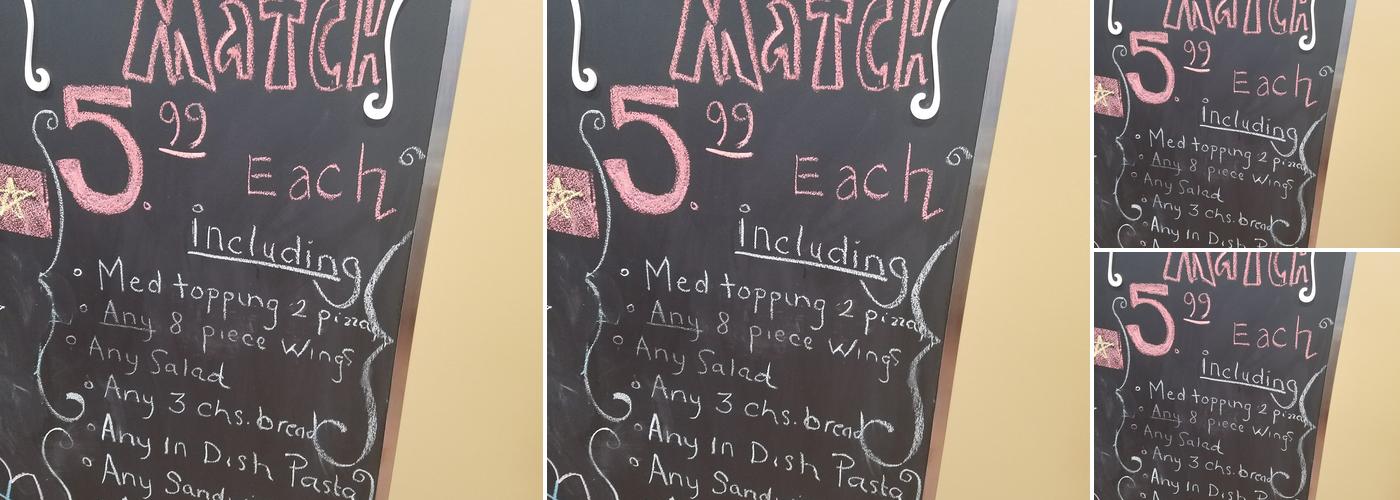 MaTCH
5.99
Each
including
Med topping 2 pizza
Any 8 piece Wings
Any Salad
Any 3 chs. bread
Any in Dish Pasta
Any
MaTCH
5.99
Each
including
Med topping 2 pizza
Any 8 piece Wings
Any Salad
Any 3 chs. bread
Any in Dish Pasta
Any
MaTCH
5.99
Each
including
Med topping 2 pizza
Any 8 piece Wings
Any Salad
Any 3 chs. bread
Any in Dish
MaTCH
5.99
Each
including
Med topping 2 pizza
Any 8 piece Wings
Any Salad
Any 3 chs. bread
Any in Dish